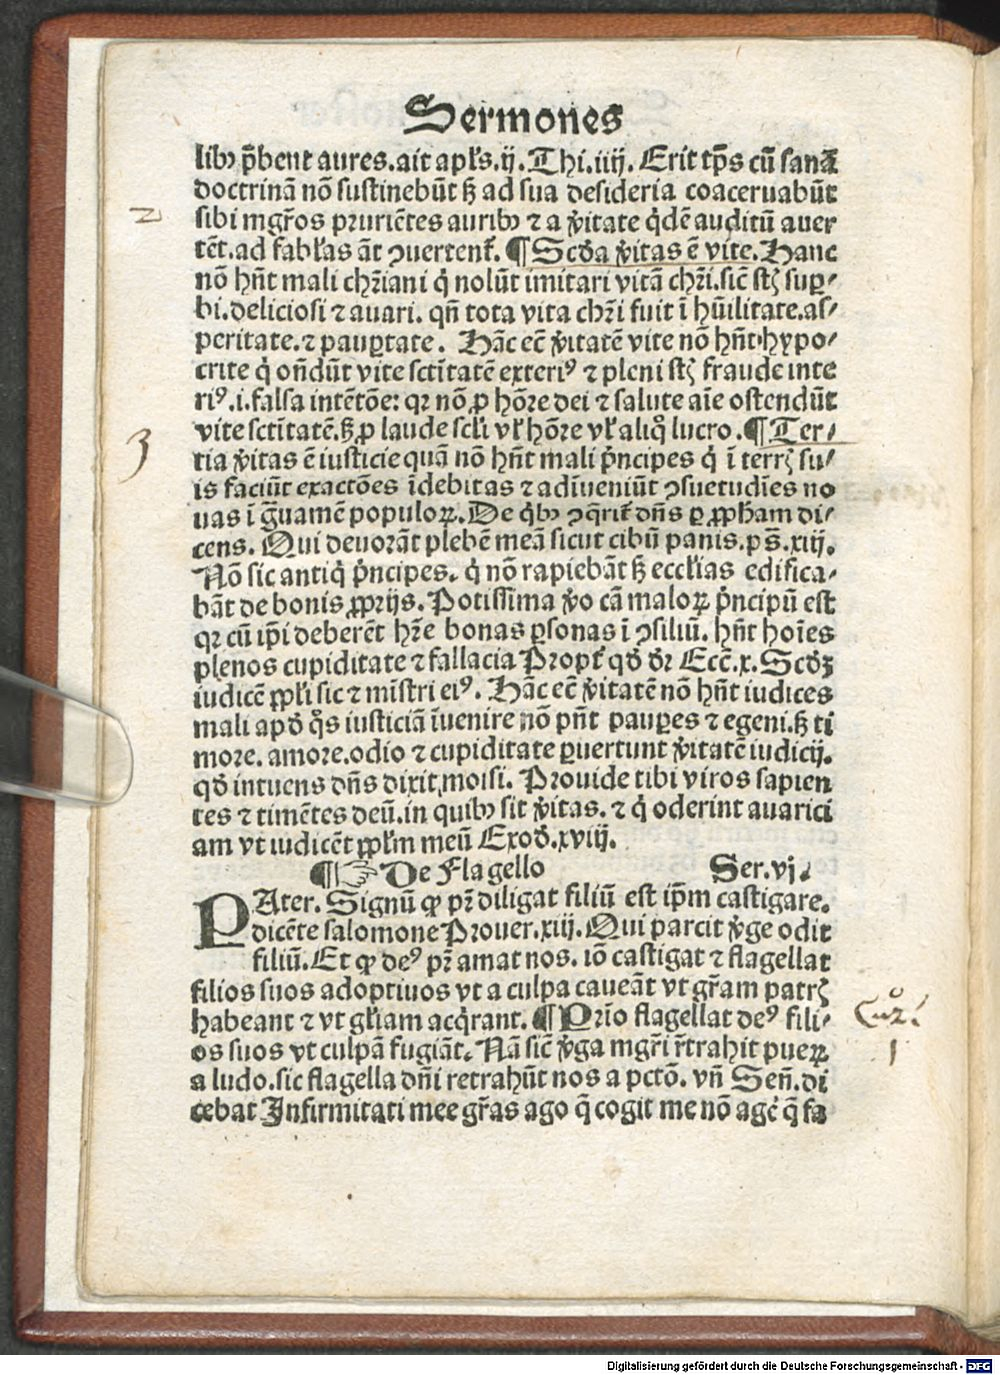 Sermones
libꝫ p̄bent aures. ait apl's. ij. Thi. iiij. Erit tp̄s cū sanā
doctrinā nō sustinebūt sꝫ ad sua desideria coaceruabūt
2
sibi mgr̄os pruriētes auribꝫ ⁊ a v̓itate q̇dē auditū auer
tēt. ad fabl'as āt ꝯuertent᷑. ¶ Scd̓a v̓itas ē vite. Hanc
nō hn̄t mali chr̄iani q̇ nolūt imitari vitā chr̄i. sic̄ st̄ꝫ suꝑ-
bi. deliciosi ⁊ auari. qn̄ tota vita chr̄i fuit ī hūilitate. as-
peritate. ⁊ pauꝑtate. Hāc ec̄ v̓itatē vite nō hn̄t hypo-
crite q̇ on̄dūt vite sctītatē exteri⁹ ⁊ pleni st̄ꝫ fraude inte
ri⁹. i. falsa intētōe: qr nō ꝓ hōre dei ⁊ salute aīe ostendūt
vite sctītatē. sꝫ ꝓ laude scl'i vl' hōre vl' aliq̊ lucro. ¶ Ter-
3
tia v̓itas ē iusticie quā nō hn̄t mali p̓ncipes q̇ ī terrꝫ su-
is faciūt exactōes īdebitas ⁊ adīueniūt ꝯsuetudīes no
uas ī g̓uamē populoꝝ. De q̇bꝫ ꝯq̄rit᷑ dn̄s ꝑ ꝓph̄am di-
cens. Qui deuorāt plebē meā sicut cibū panis. ps̄. xiij.
Nō sic antiq̇ p̓ncipes. q̇ nō rapiebāt sꝫ eccl'ias edifica-
bāt de bonis ꝓprijs. Potissima v̓o cā maloꝝ p̓ncipū est
qr cū ip̄i deberēt hr̄e bonas ꝑsonas ī ꝯsiliū. hn̄t hoīes
plenos cupiditate ⁊ fallacia Propt᷑ qd̓ dr̄ Ecc̄. x. Scd̓ꝫ
iudicē ppl'i sic ⁊ mīstri ei⁹. Hāc ec̄ v̓itatē nō hn̄t iudices
mali apd̓ q̊s iusticiā īuenire nō pn̄t pauꝑes ⁊ egeni. sꝫ ti
more. amore. odio ⁊ cupiditate ꝑuertunt v̓itatē iudicij.
qd̓ intuens dn̄s dixit moisi. Prouide tibi viros sapien
tes ⁊ timētes deū. in quibꝫ sit v̓itas. ⁊ q̇ oderint auarici
am vt iudicēt ppl'm meū Exod̓. xviij.
¶ ☞ De Flagello Ser. vj.
PAter. Signū ꝙ pr̄ diligat filiū est ip̄m castigare.
dicēte salomone Prouer. xiij. Qui parcit v̓ge odit
filiū. Et ꝙ de⁹ pr̄ amat nos. iō castigat ⁊ flagellat
filios suos adoptiuos vt a culpa caueāt vt gr̄am patrꝫ
habeant ⁊ vt gl'iam acq̇rant. ¶ Prīo flagellat de⁹ fili-
1
os suos vt culpā fugiāt. Nā sic̄ v̓ga mgr̄i r̄trahit pueꝝ
a ludo. sic flagella dn̄i retrahūt nos a pctō. vn̄ Sen̄. di
cebat Infirmitati mee gr̄as ago q̄ cogit me nō age᷑ q̄ fa
Digitalisierung gefördert durch die Deutsche Forschungsgemeinschaft - DFG